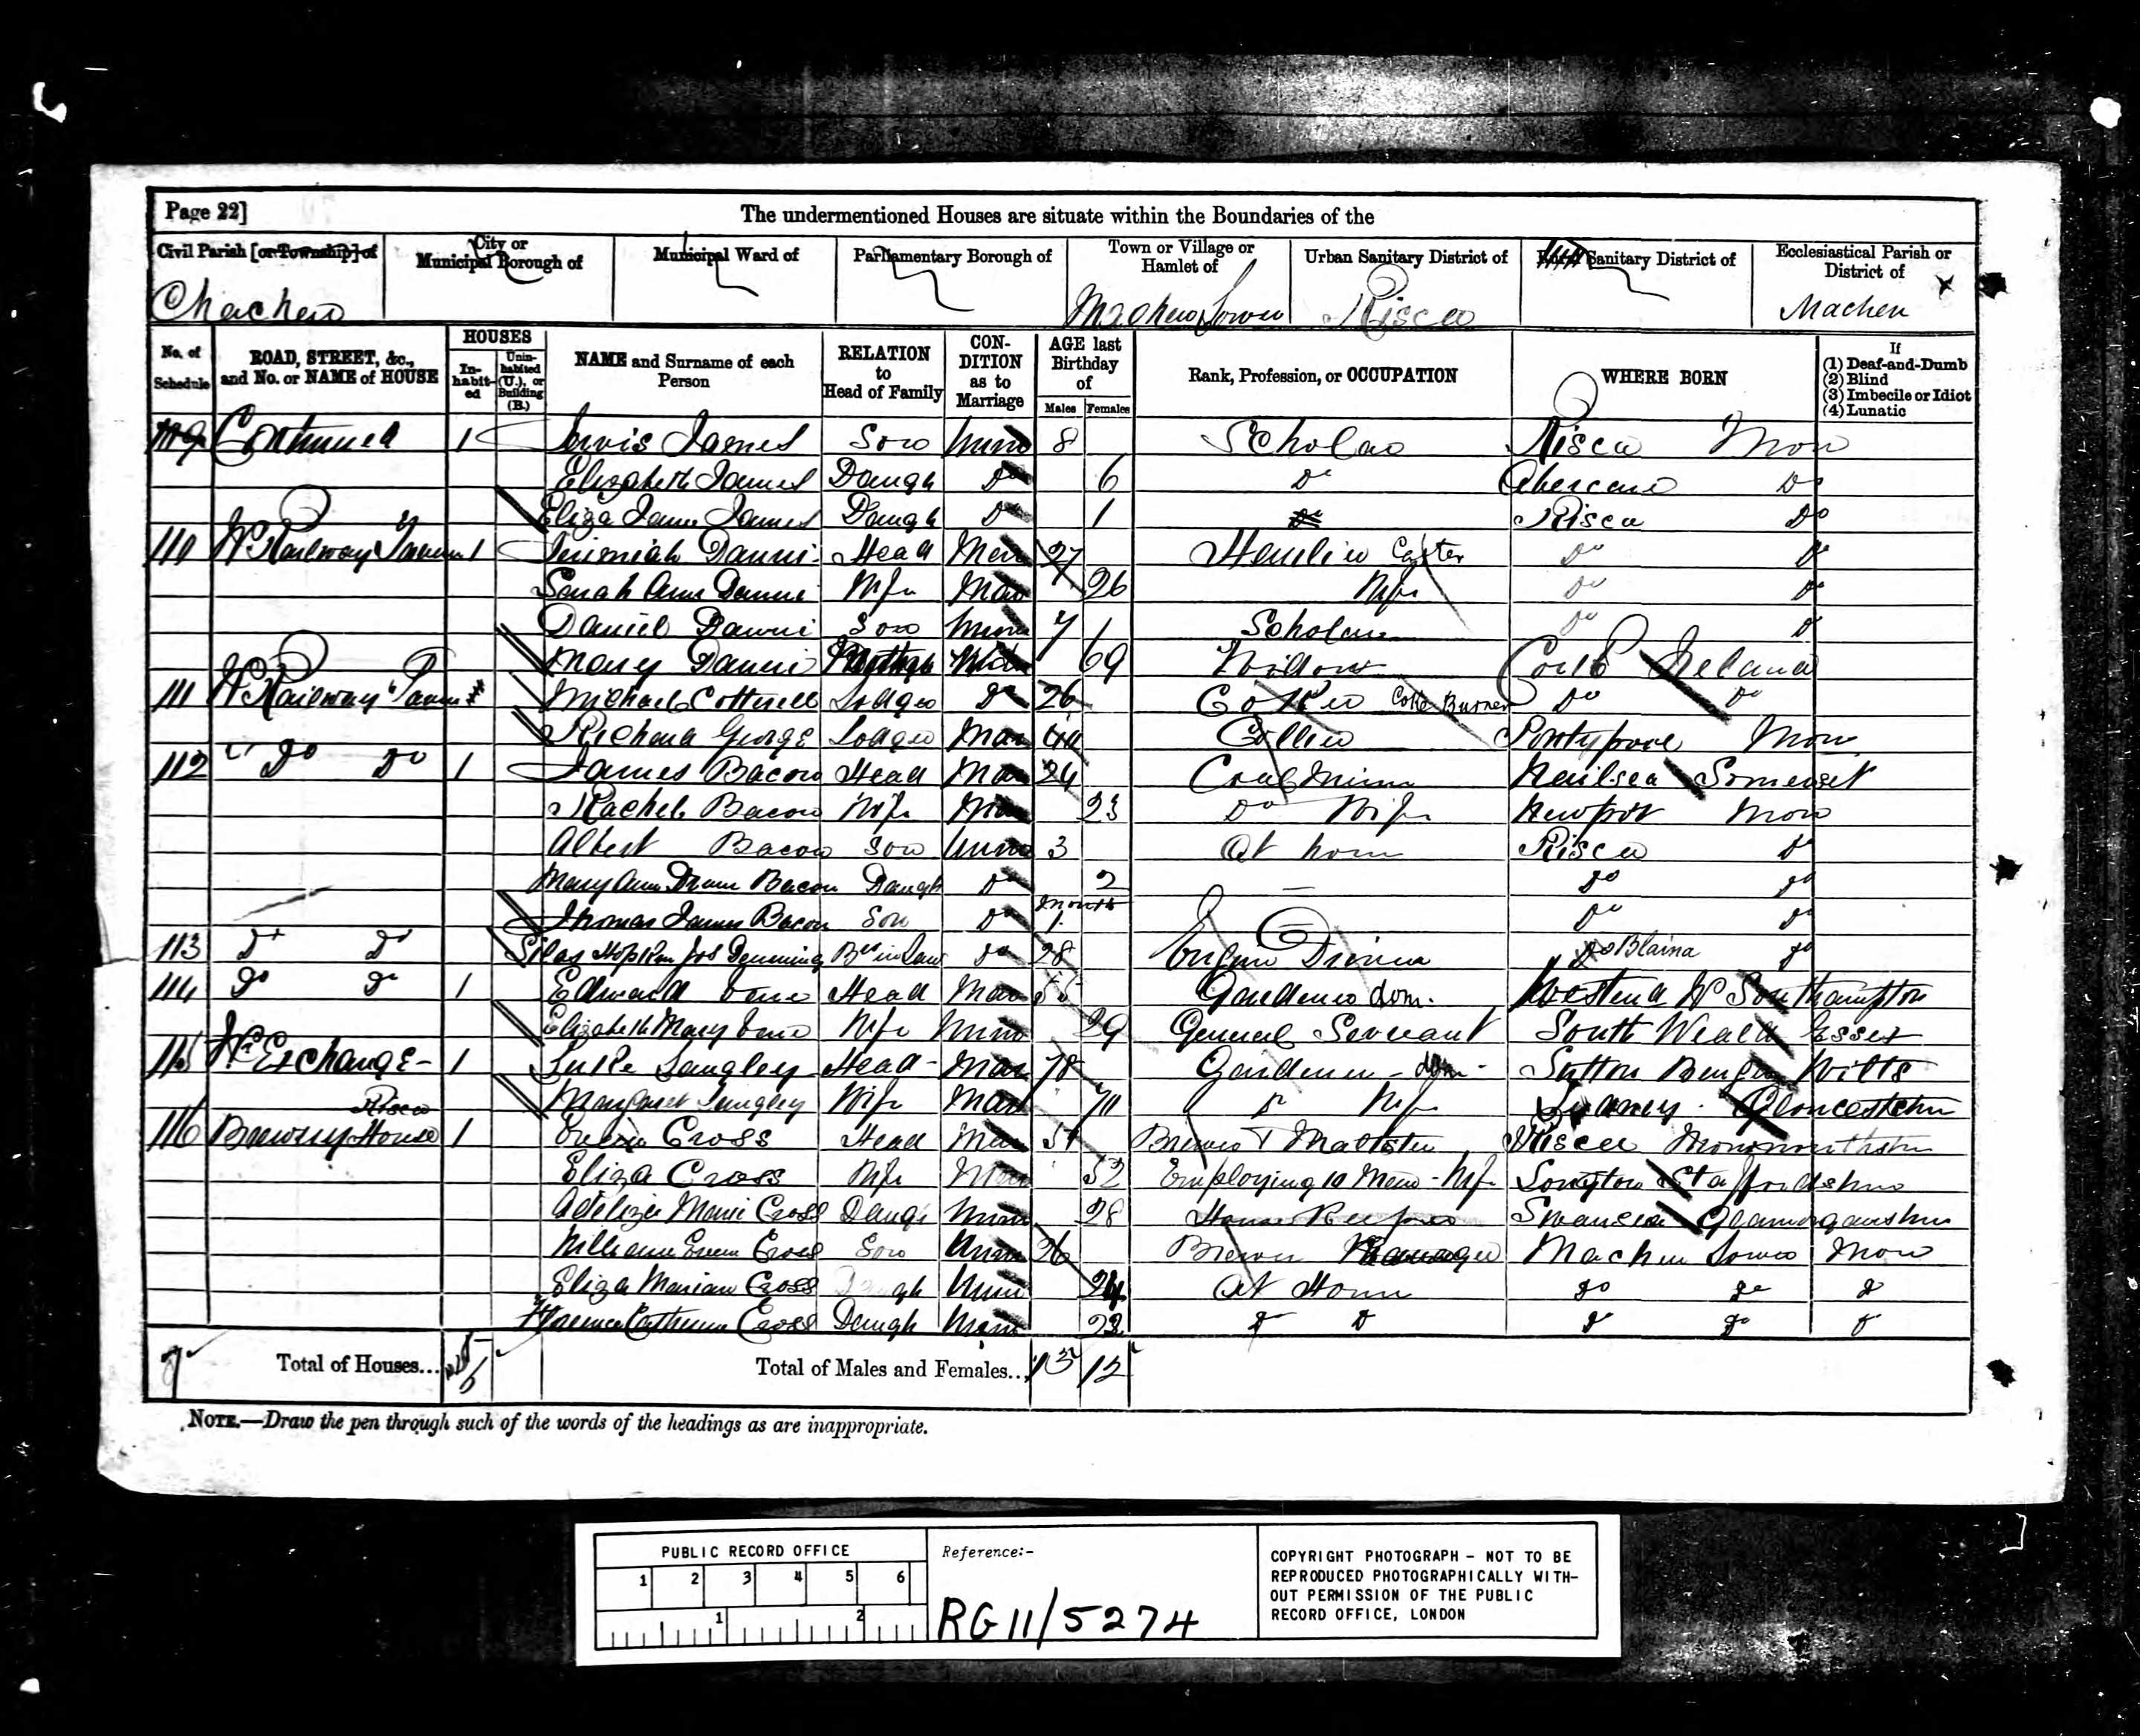 Page 22]
The undermentioned Houses are situate within the Boundaries of the
Civil Parish [or Township] of
City or Municipal Borough of
Municipal Ward of
Parliamentary Borough of
Town or Village or Hamlet of
Urban Sanitary District of
Rural Sanitary District of
Ecclesiastical Parish or District of
Machen
Machen Lower
Risca
Machen
No. of Schedule
ROAD, STREET, &c., and No. or NAME of HOUSE
HOUSES
Inhabited
Uninhabited (U.), or Building (B.)
NAME and Surname of each Person
RELATION to Head of Family
CONDITION as to Marriage
AGE last Birthday of
Males
Females
Rank, Profession, or OCCUPATION
WHERE BORN
If
(1) Deaf-and-Dumb
(2) Blind
(3) Imbecile or Idiot
(4) Lunatic
109 Continued 1 James Son 8 Scholar Risca Mon
Elizabeth James Daugh Do 6 Do Do
Eliza Jane James Daugh Do 1 Do Risca Do
110 Nr Railway 1 Jeremiah Head Mar 27 Do Do
Sarah Ann Wife Mar 26 Wife Do Do
Daniel Son 7 Scholar Do Do
Mary 69 Widow Cork Ireland
111 Nr Railway Michael Cotterell Lodger Do 26 Coke Burner Do Do
Richard George Lodger Mar Collier Pontypool Mon
112 Do Do 1 James Bacon Head Mar 24 Coal Miner Nailsea Somerset
Rachel Bacon Wife Mar 23 Do Wife Newport Mon
Albert Bacon Son Unm 3 At home Risca Do
Mary Ann Bacon Daugh Do 2 — Do Do
months
Thomas James Bacon Son Do 1 Do Do
113 Do Do Silas Br in Law Do 28 Engine Driver Do Blaina Do
114 Do Do 1 Edward Head Mar 55 Gardener dom. Westend Nr Southampton
Elizabeth Mary Wife 29 General Servant South Weald Essex
115 Nr Exchange 1 Luke Langley Head Mar 78 Gardener - dom - Sutton Benger Wilts
Risca
Margaret Langley Wife Mar Do Wife Lydney Gloucestershire
116 Brewery House 1 Cross Head Mar Brewer & Maltster Risca Monmouthshire
Eliza Cross Wife 52 Employing 10 Men - Wife Longton Staffordshire
Cross Daugh Unm 28 House Keeper Swansea Glamorganshire
William Cross Son Unm 26 Brewer Manager Machen Lower Mon
Eliza Marian Cross Daugh Unm 24 At Home Do Do Do
Florence Catherine Cross Daugh Unm Do Do Do Do Do
Total of Houses...
Total of Males and Females... 13 12
NOTE.—Draw the pen through such of the words of the headings as are inappropriate.
PUBLIC RECORD OFFICE
1 2 3 4 5 6
1 2
Reference:-
RG 11/5274
COPYRIGHT PHOTOGRAPH - NOT TO BE
REPRODUCED PHOTOGRAPHICALLY WITH-
OUT PERMISSION OF THE PUBLIC
RECORD OFFICE, LONDON